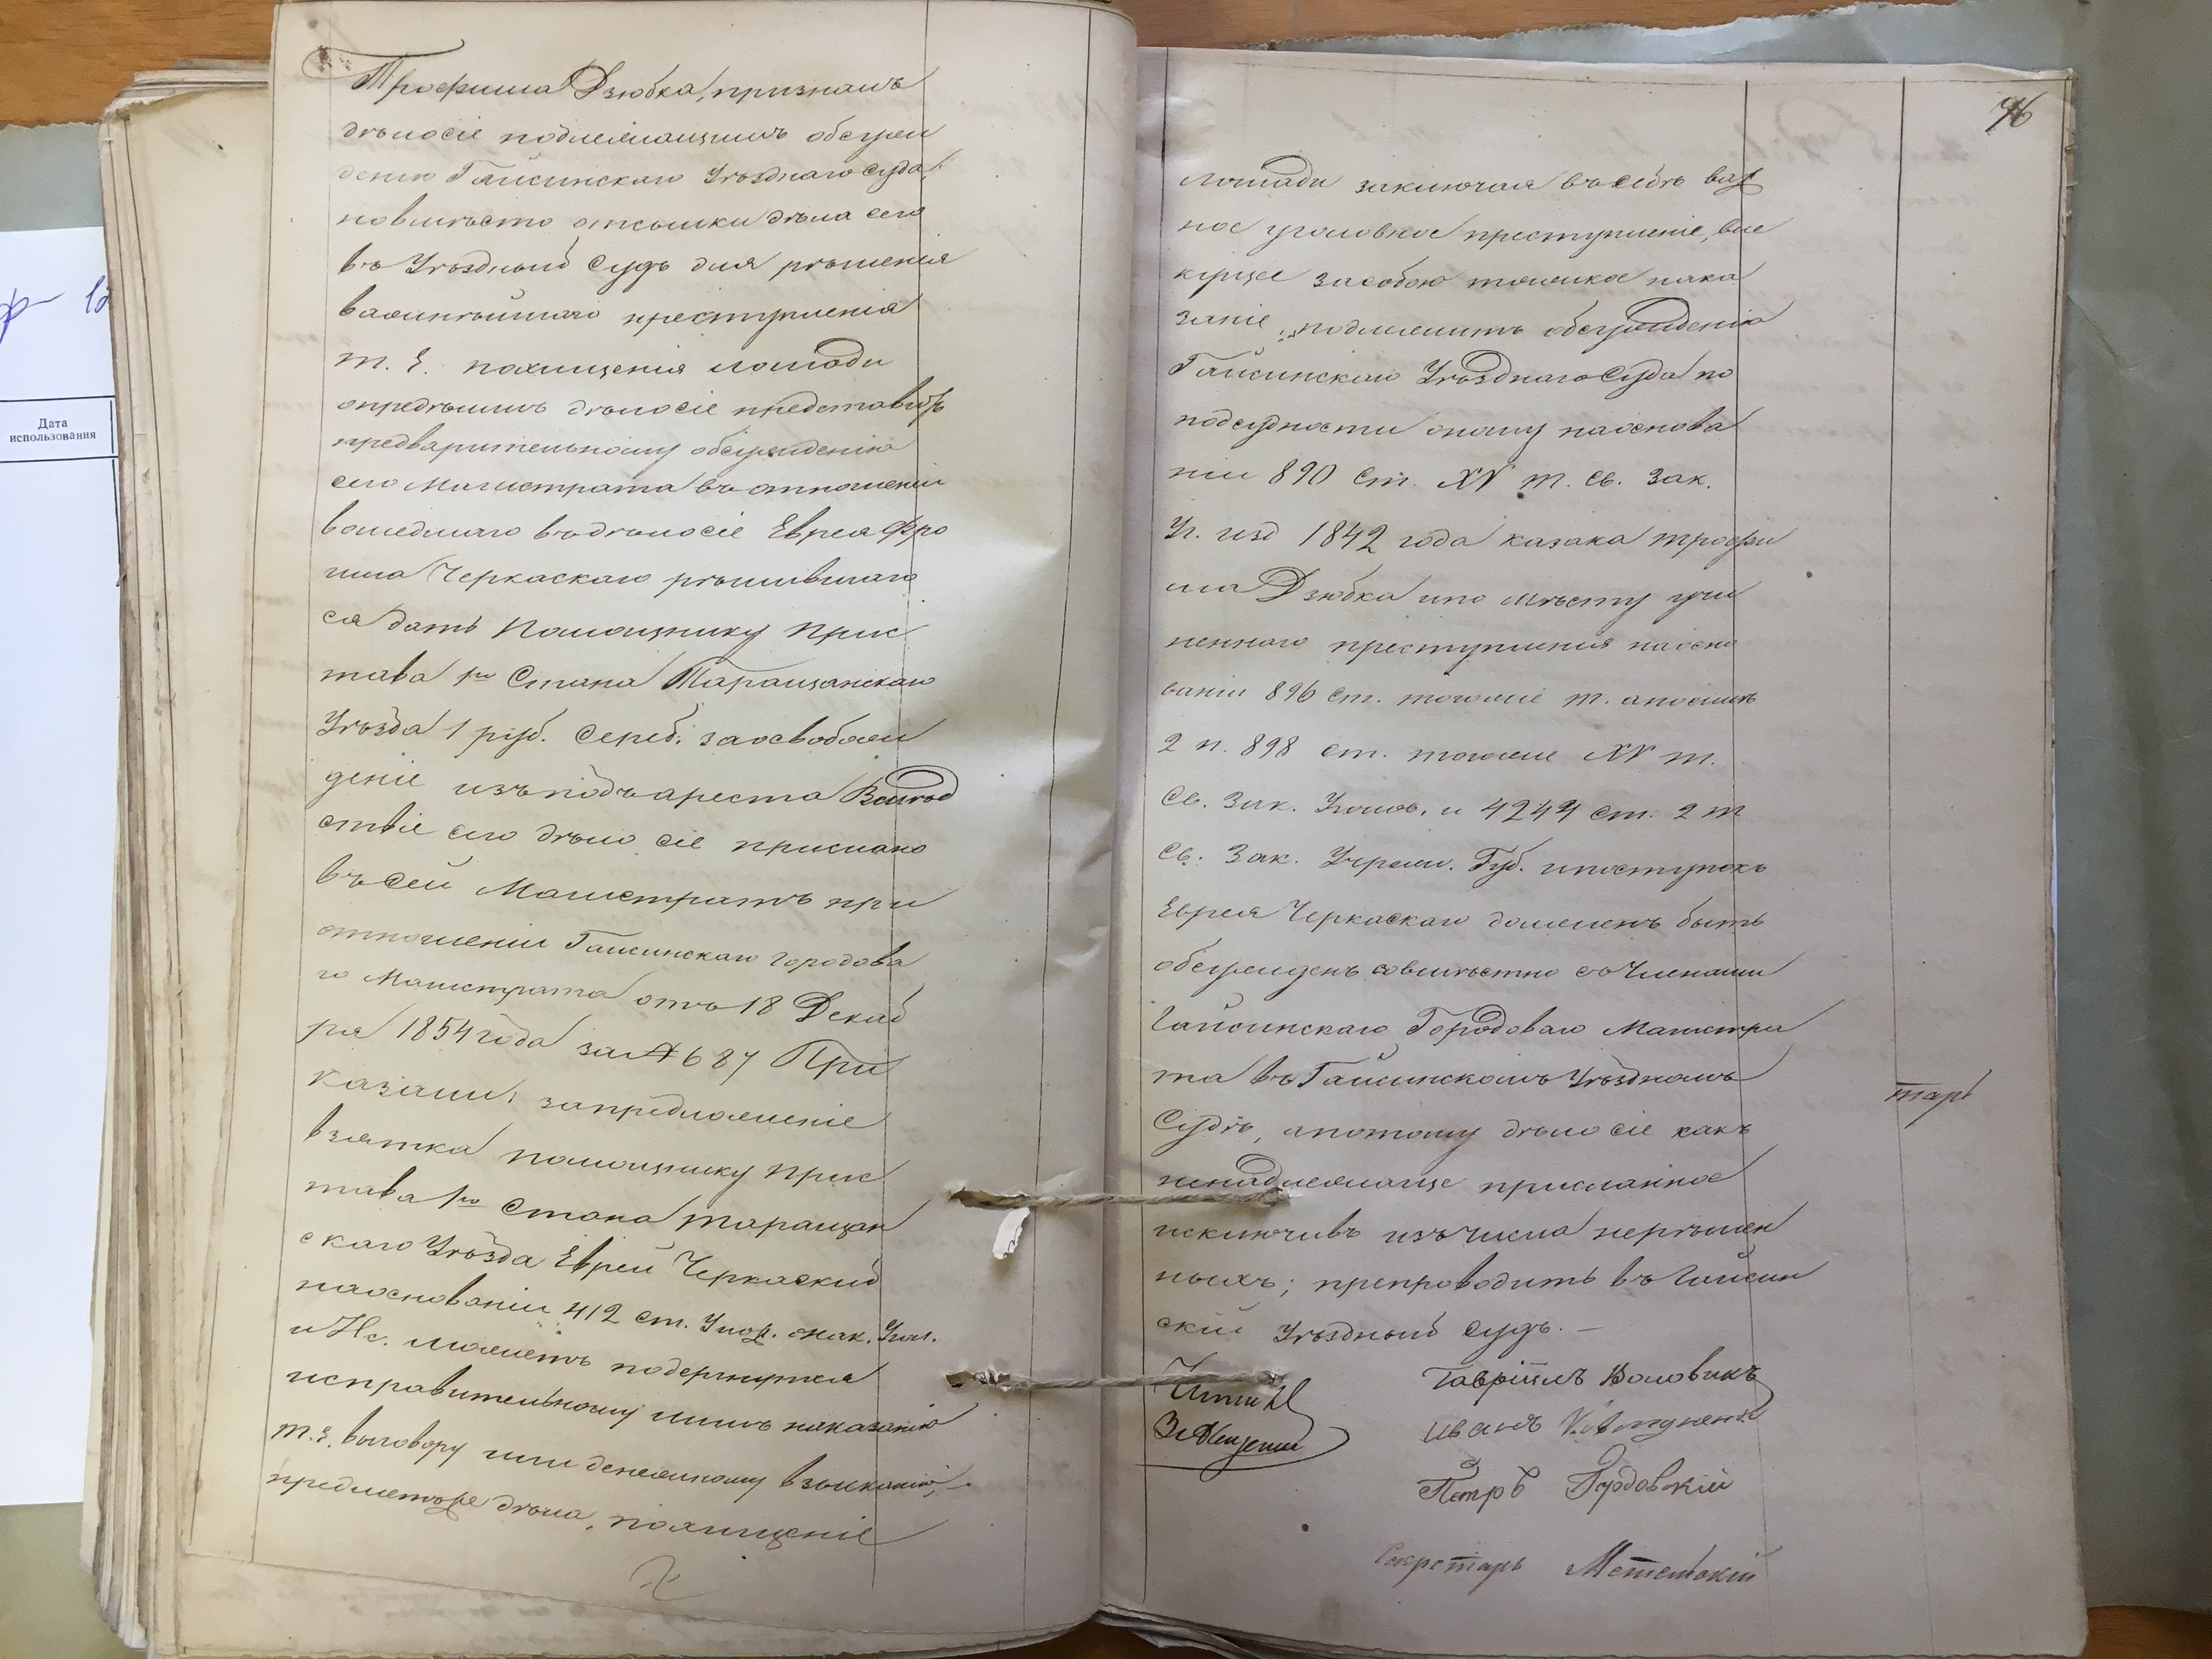 Трофима Дзюбка, признавъ
дѣло сіе подлежащимъ обсуж
денію Гайсинскаго Уѣзднаго Суда,
но вмѣсто отсылки дѣла сего
въ Уѣздный Судъ для рѣшенія
важнѣйшаго преступленія
т. е. похищенія лошади
опредѣлилъ дѣло сіе представить
предварительному обсужденію
сего Магистрата въ отношеніи
вошедшаго въ дѣло сіе Еврея Фро
има Черкаскаго рѣшившаго
ся дать Помощнику Прис
тава 1го Стана Таращанскаго
Уѣзда 1 руб. Сереб. за освобож
деніе изъ подъ ареста Вслѣд
ствіе сего дѣло сіе прислано
въ сей Магистратъ при
отношеніи Гайсинскаго Городова
го Магистрата отъ 18 Декаб
ря 1854 года за № 687 При
казали: за предложеніе
взятка помощнику Прис
тава 1го Стана Таращан
скаго Уѣзда Еврей Черкаский
на основаніи 412 ст. Улож. о нак. Угол.
и Ис. можетъ подвергнутся
исправительному лишь наказанію
т. е. выговору или денежному взысканію,
предметъ же дѣла, похищеніе
76
лошади заключая въ себѣ важ
ное уголовное преступленіе, вле
кущее за собою тяжкое нака
заніе, подлежитъ обсужденію
Гайсинскаго Уѣзднаго Суда по
подсудности оному на основа
ніи 890 ст. XV т. Св. Зак.
Уг. изд 1842 года казака Трофи
ма Дзюбка и по мѣсту учи
неннаго преступленія на осно
ваніи 896 ст. того же т. а по силѣ
2 п. 898 ст. того же XV т.
Св. Зак. Уголов. и 4244 ст. 2 т
Св. Зак. Учреж. Губ. и поступокъ
Еврея Черкаскаго долженъ быть
обсужденъ совмѣстно съ Членами
Гайсинскаго Городоваго Магистра
та въ Гайсинскомъ Уѣздномъ
Судѣ, а потому дѣло сіе какъ
ненадлежаще присланное
исключивъ изъ числа нерѣшен
ныхъ; препроводить въ Гайсин
скій Уѣздный Судъ. —
Гавріилъ Воловикъ
Иванъ
Петръ
Секретарь
тарь
Дата
использования